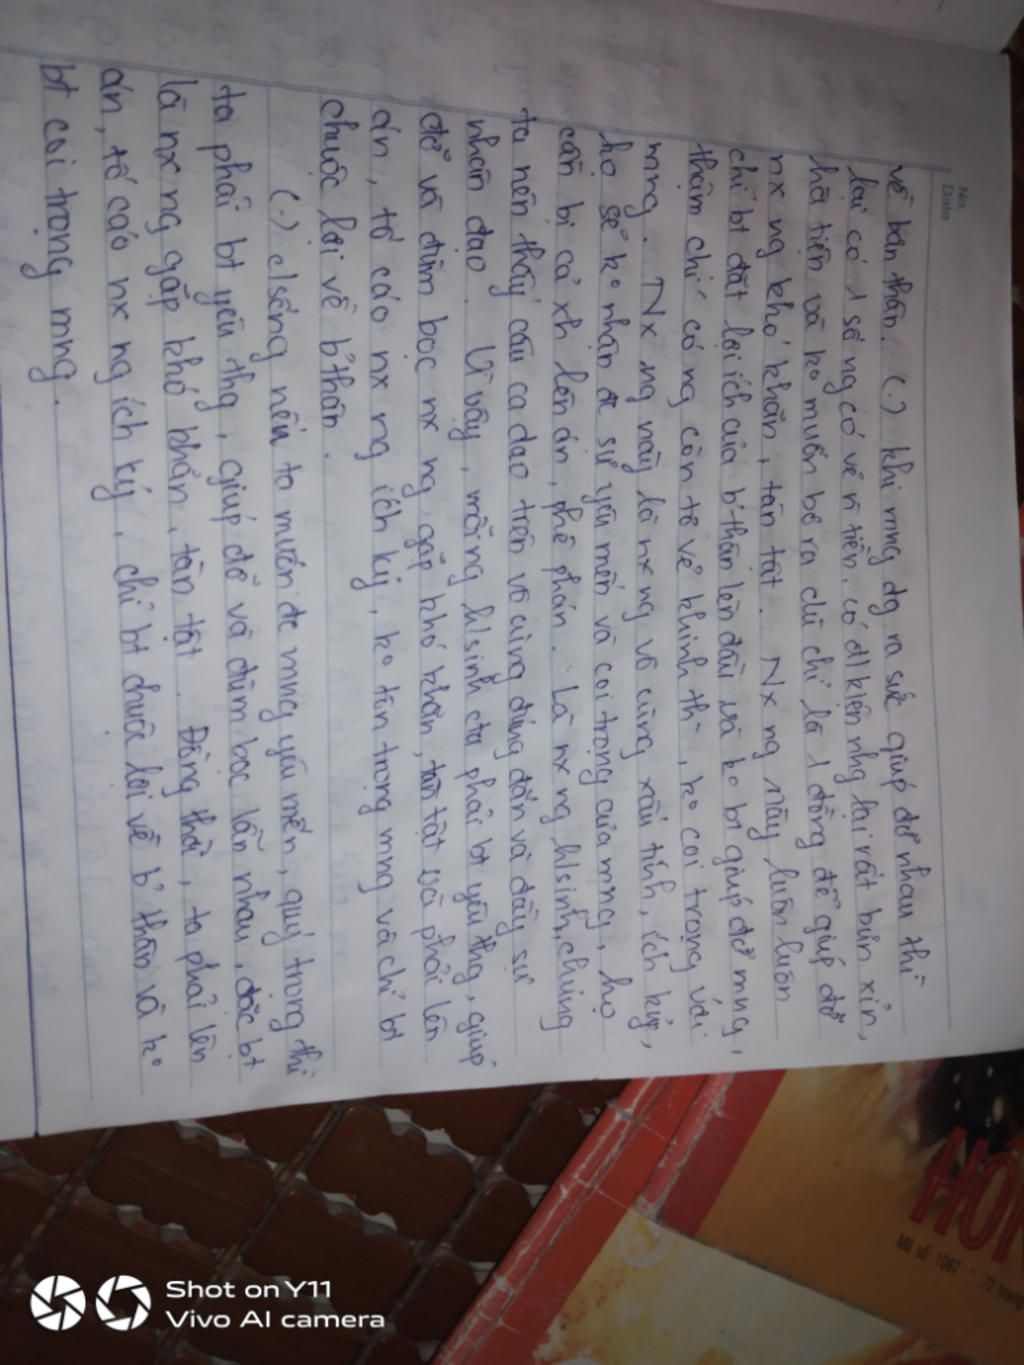 No.
Date
về bản thân. (.) khi mng đg ra sức giúp đỡ nhau thì
lại có 1 số ng có về n tiền, có đ/kiện nhg lại rất bủn xỉn,
hà tiện và ko muốn bỏ ra dù chỉ là 1 đồng để giúp đỡ
nx ng khó khăn, tàn tật. Nx ng này luôn luôn
chỉ bt đặt lợi ích của b'thân lên đầu và ko bt giúp đỡ mng,
thậm chí có ng còn tỏ vẻ khinh thì, ko coi trọng với
mng. Nx ng này là nx ng vô cùng xấu tính, ích kỷ,
họ sẽ ko nhận đc sự yêu mến và coi trọng của mng, họ
cần bị cả xh lên án, phê phán. Là nx ng h/sinh, chúng
ta nên thấy câu ca dao trên vô cùng đúng đắn và đầy sự
nhân đạo. Vì vậy, mỗi ng h/sinh cta phải bt yêu thg, giúp
đỡ và đùm bọc nx ng gặp khó khăn, tàn tật và phải lên
án, tố cáo nx ng ích kỷ, ko tôn trọng mng và chỉ bt
chuộc lợi về b'thân.
(.) c/sống nếu ta muốn đc mng yêu mến, quý trọng thì
ta phải bt yêu thg, giúp đỡ và đùm bọc lẫn nhau, đặc bt
là nx ng gặp khó khăn, tàn tật. Đồng thời, ta phải lên
án, tố cáo nx ng ích kỷ, chỉ bt chuộc lợi về b'thân và ko
bt coi trọng mng.
Mã số: 1087
72 trang
Shot on Y11
Vivo AI camera